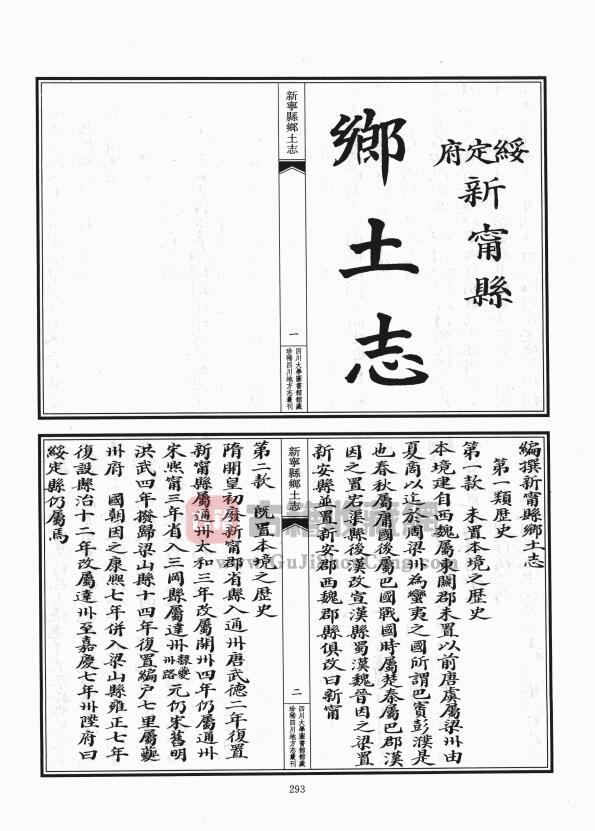 綏定府
新甯縣
鄉土志
新寧縣鄉土志
一
四川大學圖書館館藏
珍稀四川地方志叢刊
編撰新甯縣鄉土志
第一類歷史
第一款 未置本境之歷史
本境建自西魏屬東關郡未置以前唐虞屬梁州由
夏商以迄於周梁州為蠻夷之國所謂巴賨彭濮是
也春秋屬庸國後屬巴國戰國時屬楚秦屬巴郡漢
因之置宕渠縣後漢改宣漢縣蜀漢魏晉因之梁置
新安縣並置新安郡西魏郡縣俱改曰新甯
新寧縣鄉土志
二
四川大學圖書館館藏
珍稀四川地方志叢刊
第二款 既置本境之歷史
隋開皇初廢新甯郡省縣入通州唐武德二年復置
新甯縣屬通州太和三年改屬開州四年仍屬通州
宋熙甯三年省入三岡縣屬達州夔州路元仍宋舊明
洪武四年撥歸梁山縣十四年復置編戶七里屬夔
州府 國朝因之康熙七年併入梁山縣雍正七年
復設縣治十二年改屬達州至嘉慶七年州陞府曰
綏定縣仍屬焉
古籍收藏網
www.GuJiShouCang.com
293